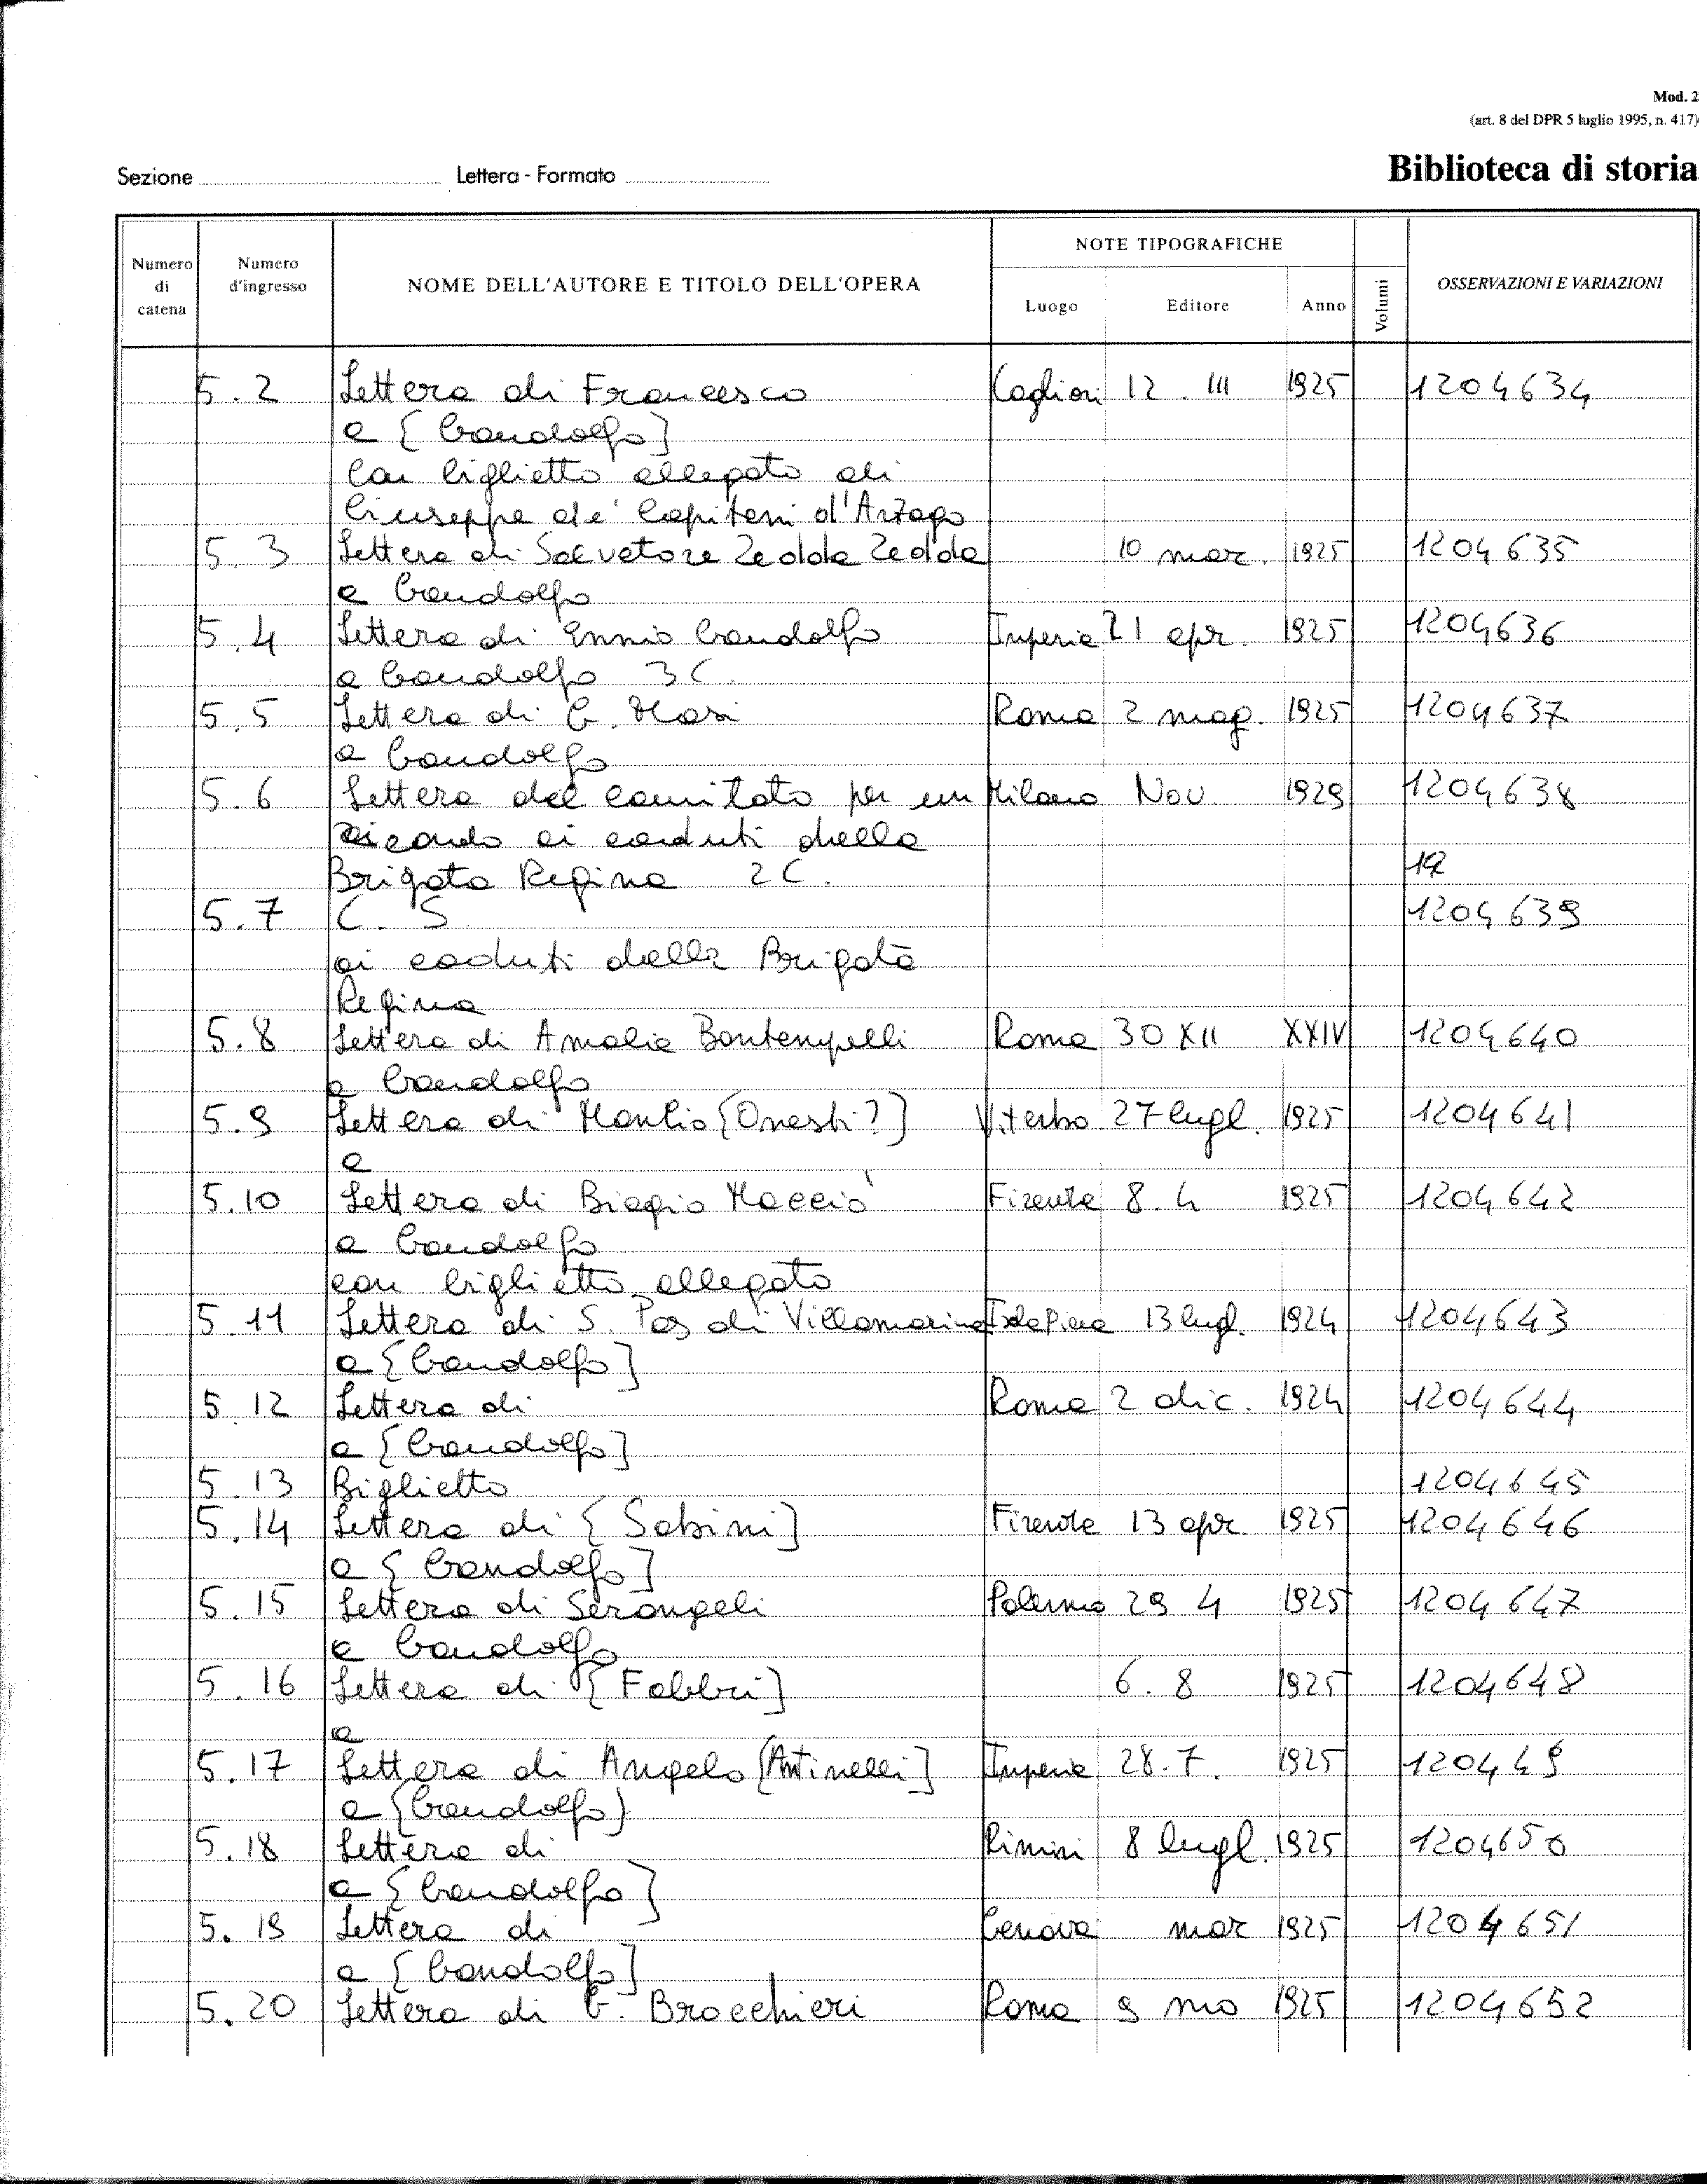 Mod. 2
(art. 8 del DPR 5 luglio 1995, n. 417)
Biblioteca di storia
Sezione Lettera - Formato
Numero di catena Numero d'ingresso NOME DELL'AUTORE E TITOLO DELL'OPERA NOTE TIPOGRAFICHE Luogo Editore Anno Volumi OSSERVAZIONI E VARIAZIONI
5.2 Lettera di Francesco Cagliari 12. III 1925 1204634
a [Gandolfo]
Con biglietto allegato di
Giuseppe de' Capitani d'Arzago
5.3 Lettera di Salvatore Zedda Zedda 10 mar. 1925 1204635
a Gandolfo
5.4 Lettera di Ennio Gandolfo Imperia 21 apr. 1925 1204636
a Gandolfo 3 C.
5.5 Lettera di G. Masi Roma 2 mag. 1925 1204637
a Gandolfo
5.6 Lettera del comitato per un Milano Nov. 1929 1204638
ricordo ai caduti della
Brigata Regina 2 C.
5.7 C. S. 1204639
ai caduti della Brigata
Regina
5.8 Lettera di Amalia Bontempelli Roma 30 XII XXIV 1204640
a Gandolfo
5.9 Lettera di Manlio [Onesti?] Viterbo 27 lugl. 1925 1204641
a
5.10 Lettera di Biagio Macciò Firenze 8.4 1925 1204642
a Gandolfo
con biglietto allegato
5.11 Lettera di S. Pes di Villamarina 13 lugl. 1924 1204643
a [Gandolfo]
5.12 Lettera di Roma 2 dic. 1924 1204644
a [Gandolfo]
5.13 Biglietto 1204645
5.14 Lettera di [Sabini] Firenze 13 apr. 1925 1204646
a [Gandolfo]
5.15 Lettera di Serangeli Palermo 29 4 1925 1204647
a Gandolfo
5.16 Lettera di [Fabbri] 6.8 1925 1204648
a
5.17 Lettera di Angelo [Antinelli] Imperia 28.7. 1925 120449
a [Gandolfo]
5.18 Lettera di Rimini 8 lugl. 1925 1204650
a [Gandolfo]
5.19 Lettera di Genova mar 1925 1204651
a [Gandolfo]
5.20 Lettera di G. Brocchieri Roma 9 1925 1204652